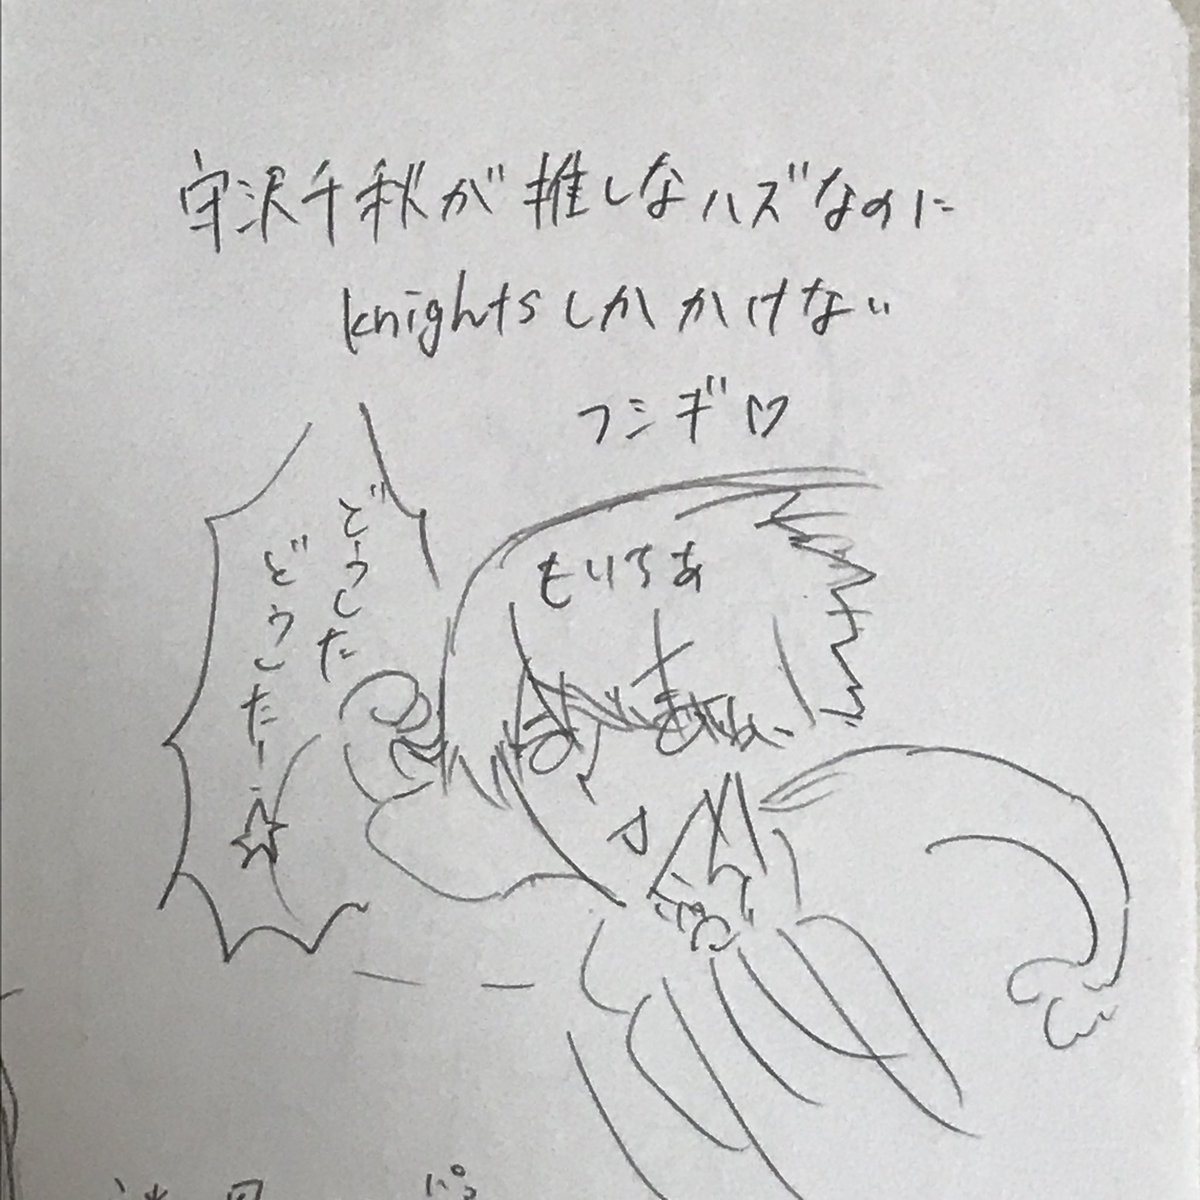 守沢千秋が推しなハズなのに
knightsしかかけない
フシギ♡
どうした
どうした!☆
もりちあ